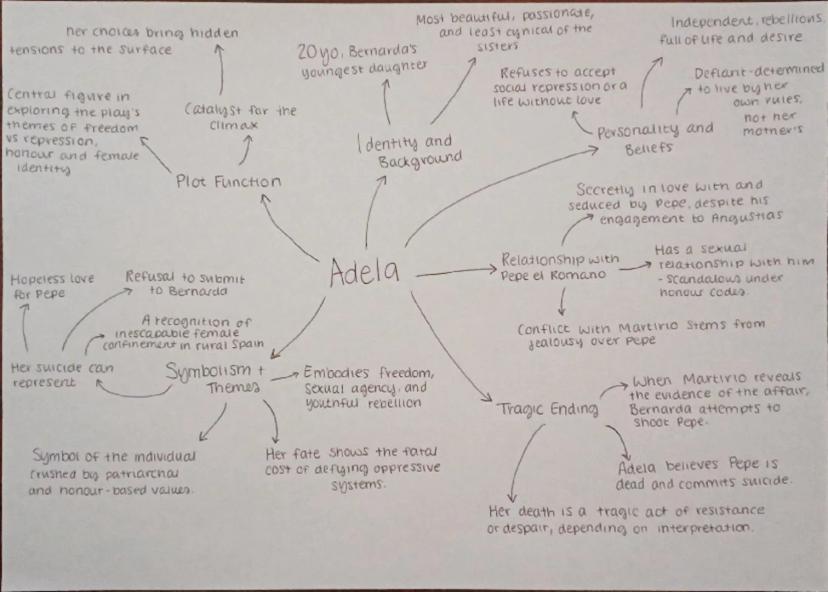 her choices bring hidden
tensions to the surface
Central figure in
exploring the play's
themes of freedom
vs repression,
honour and female
identity
Catalyst for the
climax
Plot Function
20yo, Bernarda's
youngest daughter
Most beautiful, passionate,
and least cynical of the
sisters
Identity and
Background
Refuses to accept
social repression or a
life without love
Independent, rebellious,
full of life and desire
Defiant-determined
to live by her
own rules,
not her
mother's
Personality and
Beliefs
Adela
Secretly in love with and
seduced by Pepe, despite his
engagement to Angustias
Relationship with
Pepe el Romano
Has a sexual
relationship with him
- scandalous under
honour codes.
Conflict with Martirio stems from
jealousy over Pepe
Hopeless love
for Pepe
Refusal to submit
to Bernarda
A recognition of
inescapable female
confinement in rural Spain
Her suicide can
represent
Symbolism +
Themes
Embodies freedom,
sexual agency, and
youthful rebellion
Symbol of the individual
crushed by patriarchal
and honour-based values.
Her fate shows the fatal
cost of defying oppressive
systems.
Tragic Ending
When Martirio reveals
the evidence of the affair,
Bernarda attempts to
shoot Pepe.
Adela believes Pepe is
dead and commits suicide.
Her death is a tragic act of resistance
or despair, depending on interpretation.